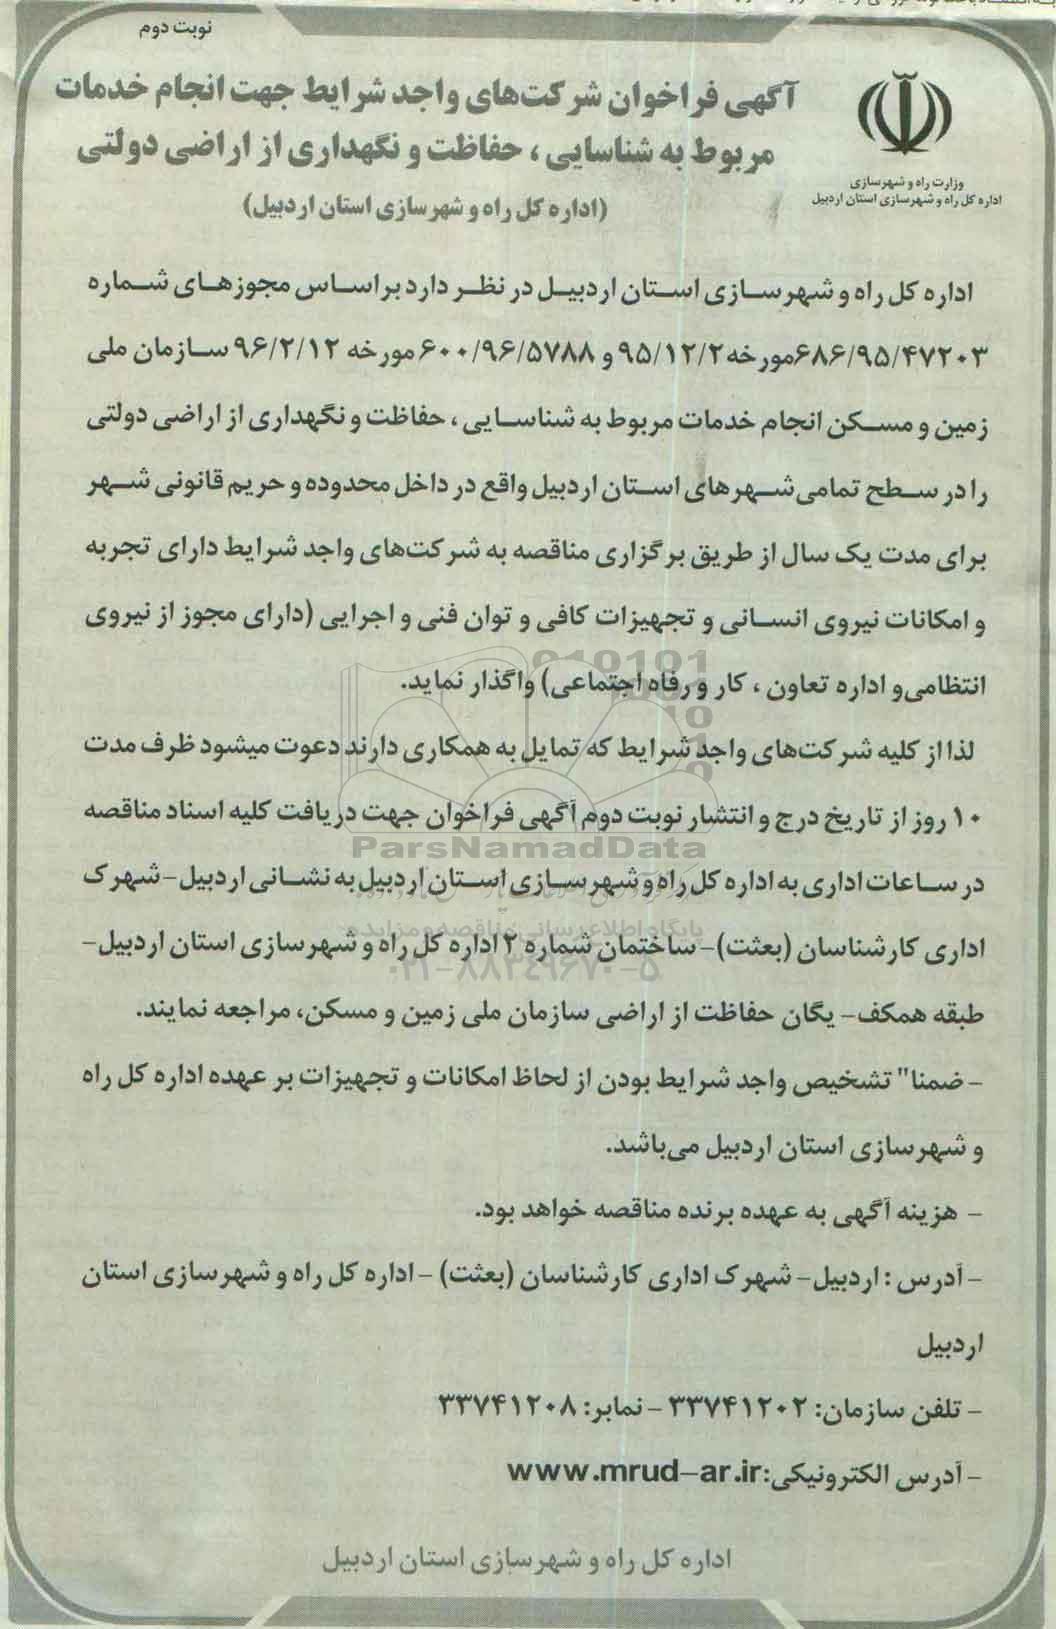 نوبت دوم
آگهی فراخوان شرکت‌های واجد شرایط جهت انجام خدمات
مربوط به شناسایی ، حفاظت و نگهداری از اراضی دولتی
(اداره کل راه و شهرسازی استان اردبیل)
وزارت راه و شهرسازی
اداره کل راه و شهرسازی استان اردبیل
اداره کل راه و شهرسازی استان اردبیل در نظر دارد براساس مجوزهای شماره
۶۸۶/۹۵/۴۷۲۰۳مورخه ۹۵/۱۲/۲ و ۶۰۰/۹۶/۵۷۸۸ مورخه ۹۶/۲/۱۲ سازمان ملی
زمین و مسکن انجام خدمات مربوط به شناسایی ، حفاظت و نگهداری از اراضی دولتی
را در سطح تمامی شهرهای استان اردبیل واقع در داخل محدوده و حریم قانونی شهر
برای مدت یک سال از طریق برگزاری مناقصه به شرکت‌های واجد شرایط دارای تجربه
و امکانات نیروی انسانی و تجهیزات کافی و توان فنی و اجرایی (دارای مجوز از نیروی
انتظامی و اداره تعاون ، کار و رفاه اجتماعی) واگذار نماید.
لذا از کلیه شرکت‌های واجد شرایط که تمایل به همکاری دارند دعوت میشود ظرف مدت
۱۰ روز از تاریخ درج و انتشار نوبت دوم آگهی فراخوان جهت دریافت کلیه اسناد مناقصه
در ساعات اداری به اداره کل راه و شهرسازی استان اردبیل به نشانی اردبیل-شهرک
اداری کارشناسان (بعثت)-ساختمان شماره ۲ اداره کل راه و شهرسازی استان اردبیل-
طبقه همکف- یگان حفاظت از اراضی سازمان ملی زمین و مسکن، مراجعه نمایند.
- ضمنا" تشخیص واجد شرایط بودن از لحاظ امکانات و تجهیزات بر عهده اداره کل راه
و شهرسازی استان اردبیل می‌باشد.
- هزینه آگهی به عهده برنده مناقصه خواهد بود.
- آدرس : اردبیل- شهرک اداری کارشناسان (بعثت) -اداره کل راه و شهرسازی استان
اردبیل
- تلفن سازمان: ۳۳۷۴۱۲۰۲ - نمابر: ۳۳۷۴۱۲۰۸
- آدرس الکترونیکی:www.mrud-ar.ir
اداره کل راه و شهرسازی استان اردبیل
ParsNamadData
پایگاه اطلاع رسانی مناقصه و مزایده
۰۲۱-۸۸۳۴۹۶۷۰-۵